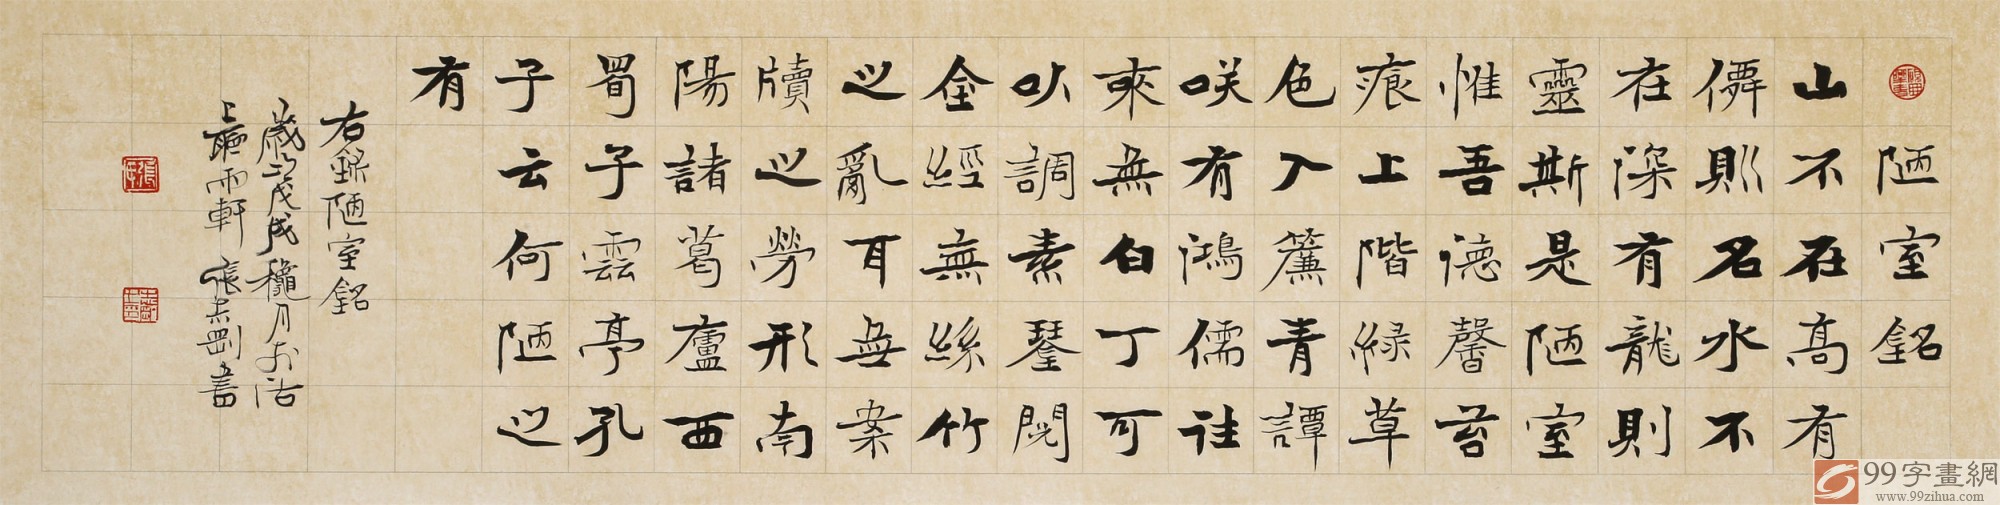 陋室銘
山不在高有
僊則名水不
在深有龍則
靈斯是陋室
惟吾德馨苔
痕上階緑草
色入簾青譚
咲有鴻儒往
來無白丁可
以調素琴閱
金經無絲竹
之亂耳無案
牘之勞形南
陽諸葛廬西
蜀子雲亭孔
子云何陋之
有
右錄陋室銘
歲次戊戌穐月於沽
上聽雨軒張志剛書
99字畫網
www.99zihua.com